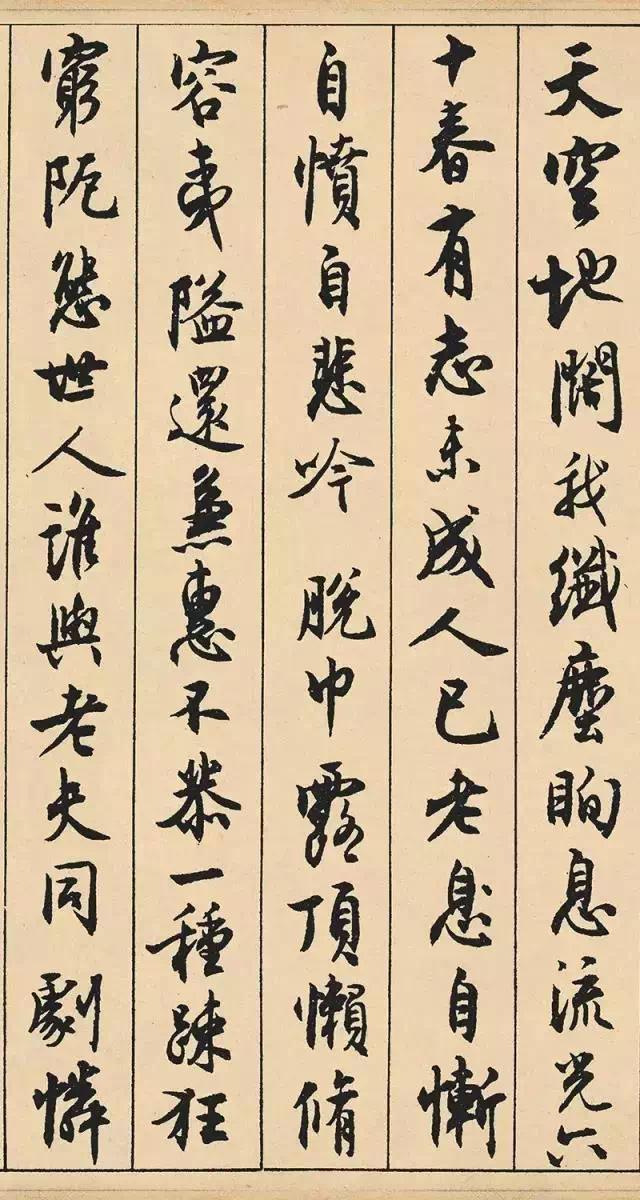 天空地闊我纖塵眴息流光六
十春有志未成人已老息自慚
自憤自悲吟 脫巾露頂懶脩
容夷隘還兼惠不恭一種疎狂
窮阨態世人誰與老夫同 劇憐